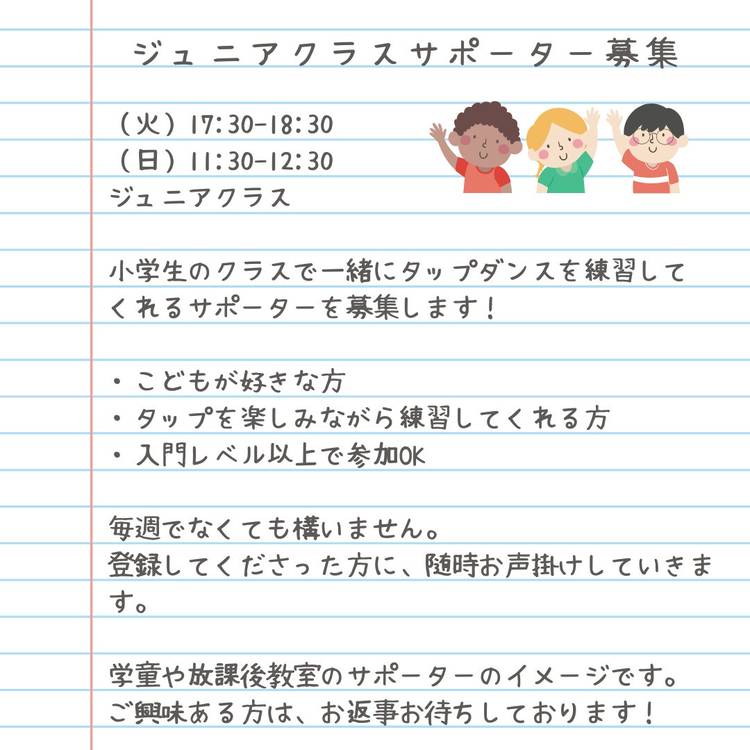 ジュニアクラスサポーター募集
（火）17:30-18:30
（日）11:30-12:30
ジュニアクラス
小学生のクラスで一緒にタップダンスを練習して
くれるサポーターを募集します！
・こどもが好きな方
・タップを楽しみながら練習してくれる方
・入門レベル以上で参加OK
毎週でなくても構いません。
登録してくださった方に、随時お声掛けしていきま
す。
学童や放課後教室のサポーターのイメージです。
ご興味ある方は、お返事お待ちしております！